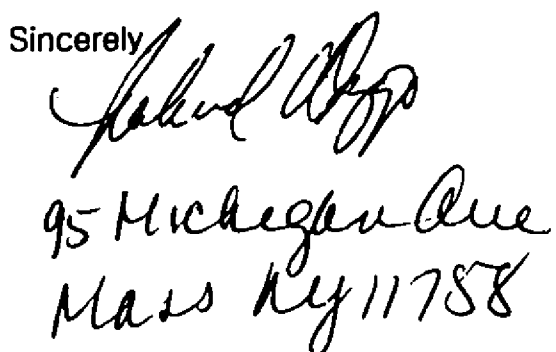 Sincerely
95 Michegan Ave
Mass NY 11758